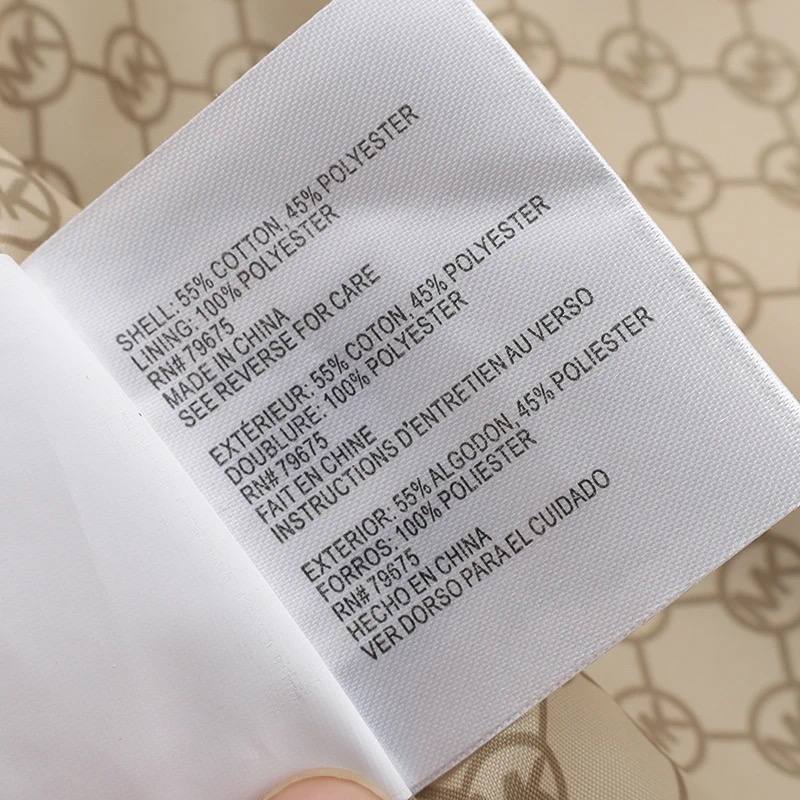 SHELL: 55% COTTON, 45% POLYESTER
LINING: 100% POLYESTER
RN# 79675
MADE IN CHINA
SEE REVERSE FOR CARE
EXTÉRIEUR: 55% COTON, 45% POLYESTER
DOUBLURE: 100% POLYESTER
RN# 79675
FAIT EN CHINE
INSTRUCTIONS D'ENTRETIEN AU VERSO
EXTERIOR: 55% ALGODON, 45% POLIESTER
FORROS: 100% POLIESTER
RN# 79675
HECHO EN CHINA
VER DORSO PARA EL CUIDADO
MK
MK
MK
MK
MK
MK